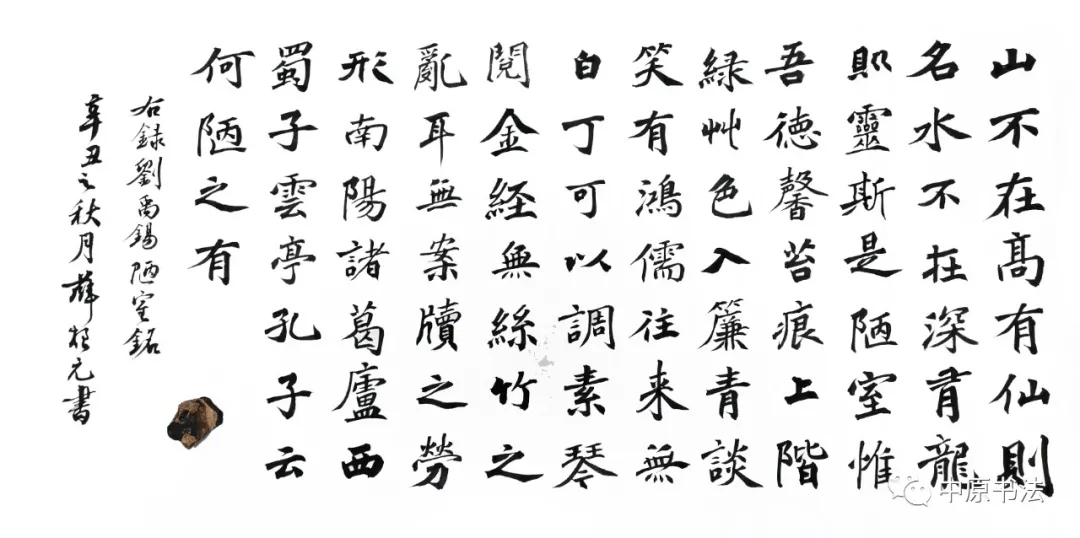 山不在髙有仙則
名水不在深有龍
則靈斯是陋室惟
吾德馨苔痕上階
緑艸色入簾青談
笑有鴻儒往来無
白丁可以調素琴
閲金経無絲竹之
亂耳無案牘之勞
形南陽諸葛廬西
蜀子雲亭孔子云
何陋之有
右録劉禹錫陋室銘
辛丑之秋月薛元書
中原书法